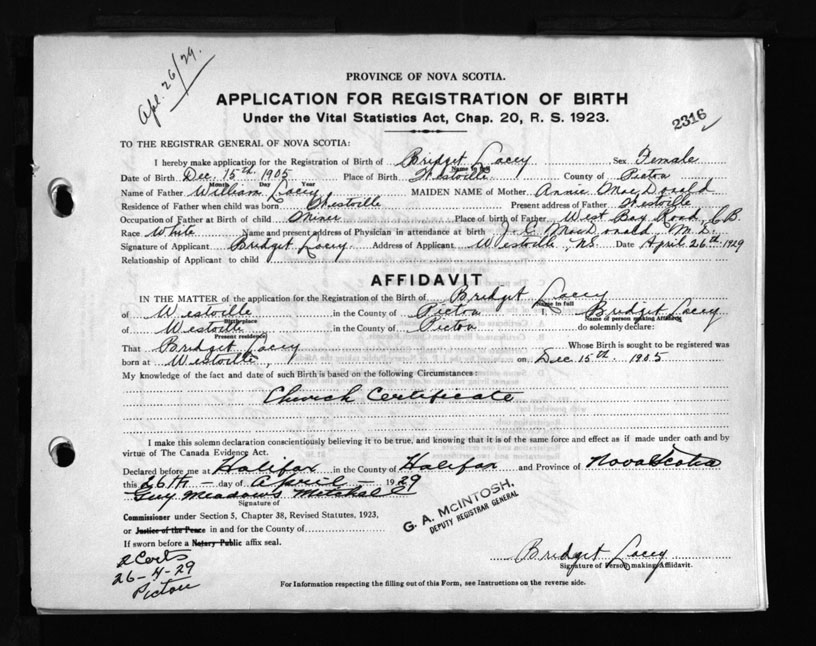 Apl. 26/29.
PROVINCE OF NOVA SCOTIA.
APPLICATION FOR REGISTRATION OF BIRTH
Under the Vital Statistics Act, Chap. 20, R. S. 1923.
2316
TO THE REGISTRAR GENERAL OF NOVA SCOTIA:
I hereby make application for the Registration of Birth of Bridget Lacey Sex Female
Name in full
Date of Birth Dec. 15th 1905 Place of Birth Westville County of Pictou
Month Day Year
Name of Father William Lacey MAIDEN NAME of Mother Annie MacDonald
Residence of Father when child was born Westville Present address of Father Westville
Occupation of Father at Birth of child Miner Place of birth of Father West Bay Road, C B
Race White Name and present address of Physician in attendance at birth J. C. MacDonald, M. D.
Signature of Applicant Bridget Lacey Address of Applicant Westville, NS Date April 26th 1929
Relationship of Applicant to child
AFFIDAVIT
IN THE MATTER of the application for the Registration of the Birth of Bridget Lacey
Name in full
of Westville in the County of Pictou I, Bridget Lacey
Birthplace Name of person making Affidavit
of Westville in the County of Pictou do solemnly declare:
Present residence
That Bridget Lacey Whose Birth is sought to be registered was
born at Westville, on Dec 15th 1905
My knowledge of the fact and date of such Birth is based on the following Circumstances:
Church Certificate
I make this solemn declaration conscientiously believing it to be true, and knowing that it is of the same force and effect as if made under oath and by
virtue of The Canada Evidence Act.
Declared before me at Halifax in the County of Halifax and Province of Nova Scotia
this 26th day of April 1929
Guy Meadows
Signature of
Commissioner under Section 5, Chapter 38, Revised Statutes, 1923,
or Justice of the Peace in and for the County of
If sworn before a Notary Public affix seal.
G. A. McINTOSH,
DEPUTY REGISTRAR GENERAL
2 Certs
26-4-29
Pictou
Bridget Lacey
Signature of Person making Affidavit.
For Information respecting the filling out of this Form, see Instructions on the reverse side.